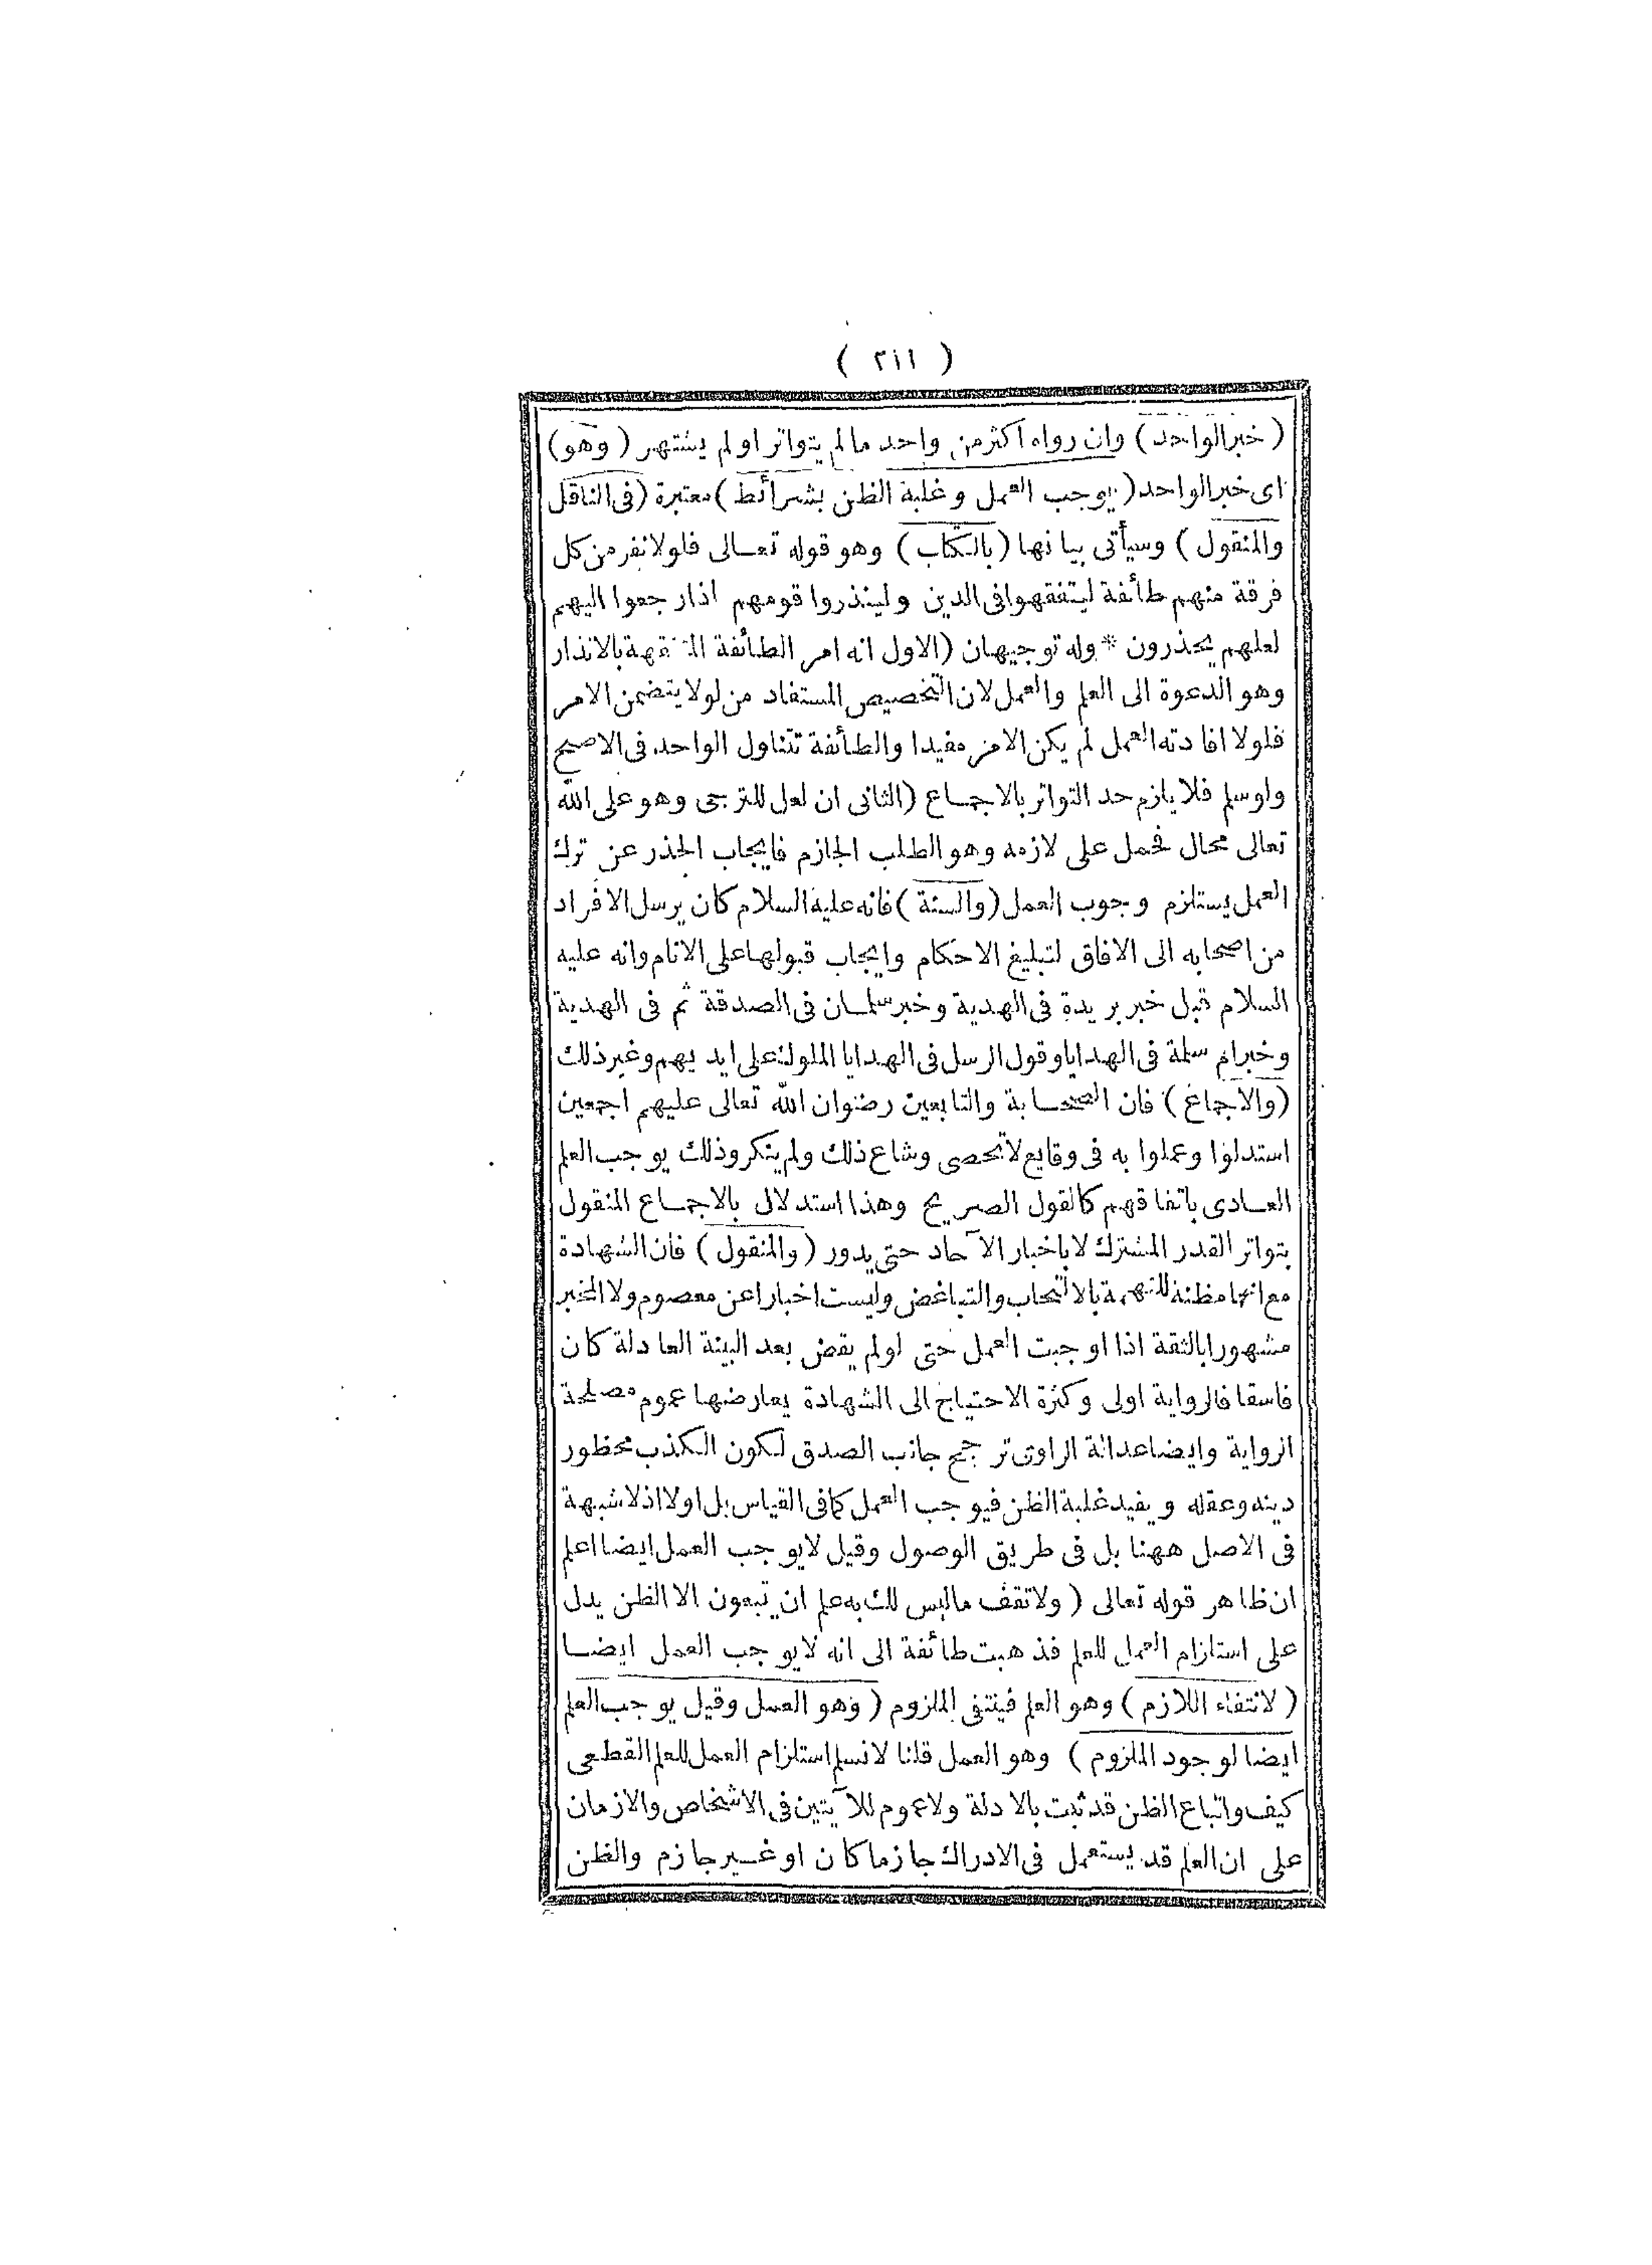 ( ٢١١ )
(خبر الواحد) وان رواه اكثر من واحد ما لم يتواتر او لم يشتهر (وهو)
اى خبر الواحد (يوجب العمل وغلبة الظن بشرائط) معتبرة (فى الناقل
والمنقول) وسيأتى بيانها (بالكتاب) وهو قوله تعالى فلولا نفر من كل
فرقة منهم طائفة ليتفقهوا فى الدين ولينذروا قومهم اذا رجعوا اليهم
لعلهم يحذرون * وله توجيهان (الاول انه امر الطائفة المتفقهة بالانذار
وهو الدعوة الى العلم والعمل لان التخصيص المستفاد من لولا يتضمن الامر
فلولا افادته العمل لم يكن الامر مفيدا والطائفة تتناول الواحد فى الاصح
ولو سلم فلا يلزم حد التواتر بالاجماع (الثانى ان لعل للترجى وهو على الله
تعالى محال فحمل على لازمه وهو الطلب الجازم فايجاب الحذر عن ترك
العمل يستلزم وجوب العمل (والسنة) فانه عليه السلام كان يرسل الافراد
من اصحابه الى الافاق لتبليغ الاحكام وايجاب قبولها على الانام وانه عليه
السلام قبل خبر بريدة فى الهدية وخبر سلمان فى الصدقة ثم فى الهدية
وخبر ام سلمة فى الهدايا وقول الرسل فى الهدايا الملوك على ايديهم وغير ذلك
(والاجماع) فان الصحابة والتابعين رضوان الله تعالى عليهم اجمعين
استدلوا وعملوا به فى وقايع لا تحصى وشاع ذلك ولم ينكر وذلك يوجب العلم
العادى باتفاقهم كالقول الصريح وهذا استدلال بالاجماع المنقول
بتواتر القدر المشترك لا باخبار الآحاد حتى يدور (والمنقول) فان الشهادة
مع انها مظنة للتهمة بالتحاب والتباغض وليست اخبارا عن معصوم ولا المخبر
مشهورا بالثقة اذا اوجبت العمل حتى لو لم يقض بعد البينة العادلة كان
فاسقا فالرواية اولى وكثرة الاحتياج الى الشهادة يعارضها عموم مصلحة
الرواية وايضا عدالة الراوى ترجح جانب الصدق لكون الكذب محظور
دينه وعقله ويفيد غلبة الظن فيوجب العمل كما فى القياس بل اولا اذ لا شبهة
فى الاصل ههنا بل فى طريق الوصول وقيل لا يوجب العمل ايضا اعلم
ان ظاهر قوله تعالى (ولا تقف ما ليس لك به علم ان تبعون الا الظن يدل
على استلزام العمل للعلم فذهبت طائفة الى انه لا يوجب العمل ايضا
(لانتفاء اللازم) وهو العلم فينتفى الملزوم (وهو العمل وقيل يوجب العلم
ايضا لوجود الملزوم) وهو العمل قلنا لا نسلم استلزام العمل للعلم القطعى
كيف واتباع الظن قد ثبت بالادلة ولا عموم للآيتين فى الاشخاص والازمان
على ان العلم قد يستعمل فى الادراك جازما كان او غير جازم والظن